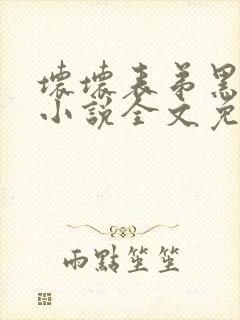 壞壞表弟黑
小說全文免
雨點笙笙